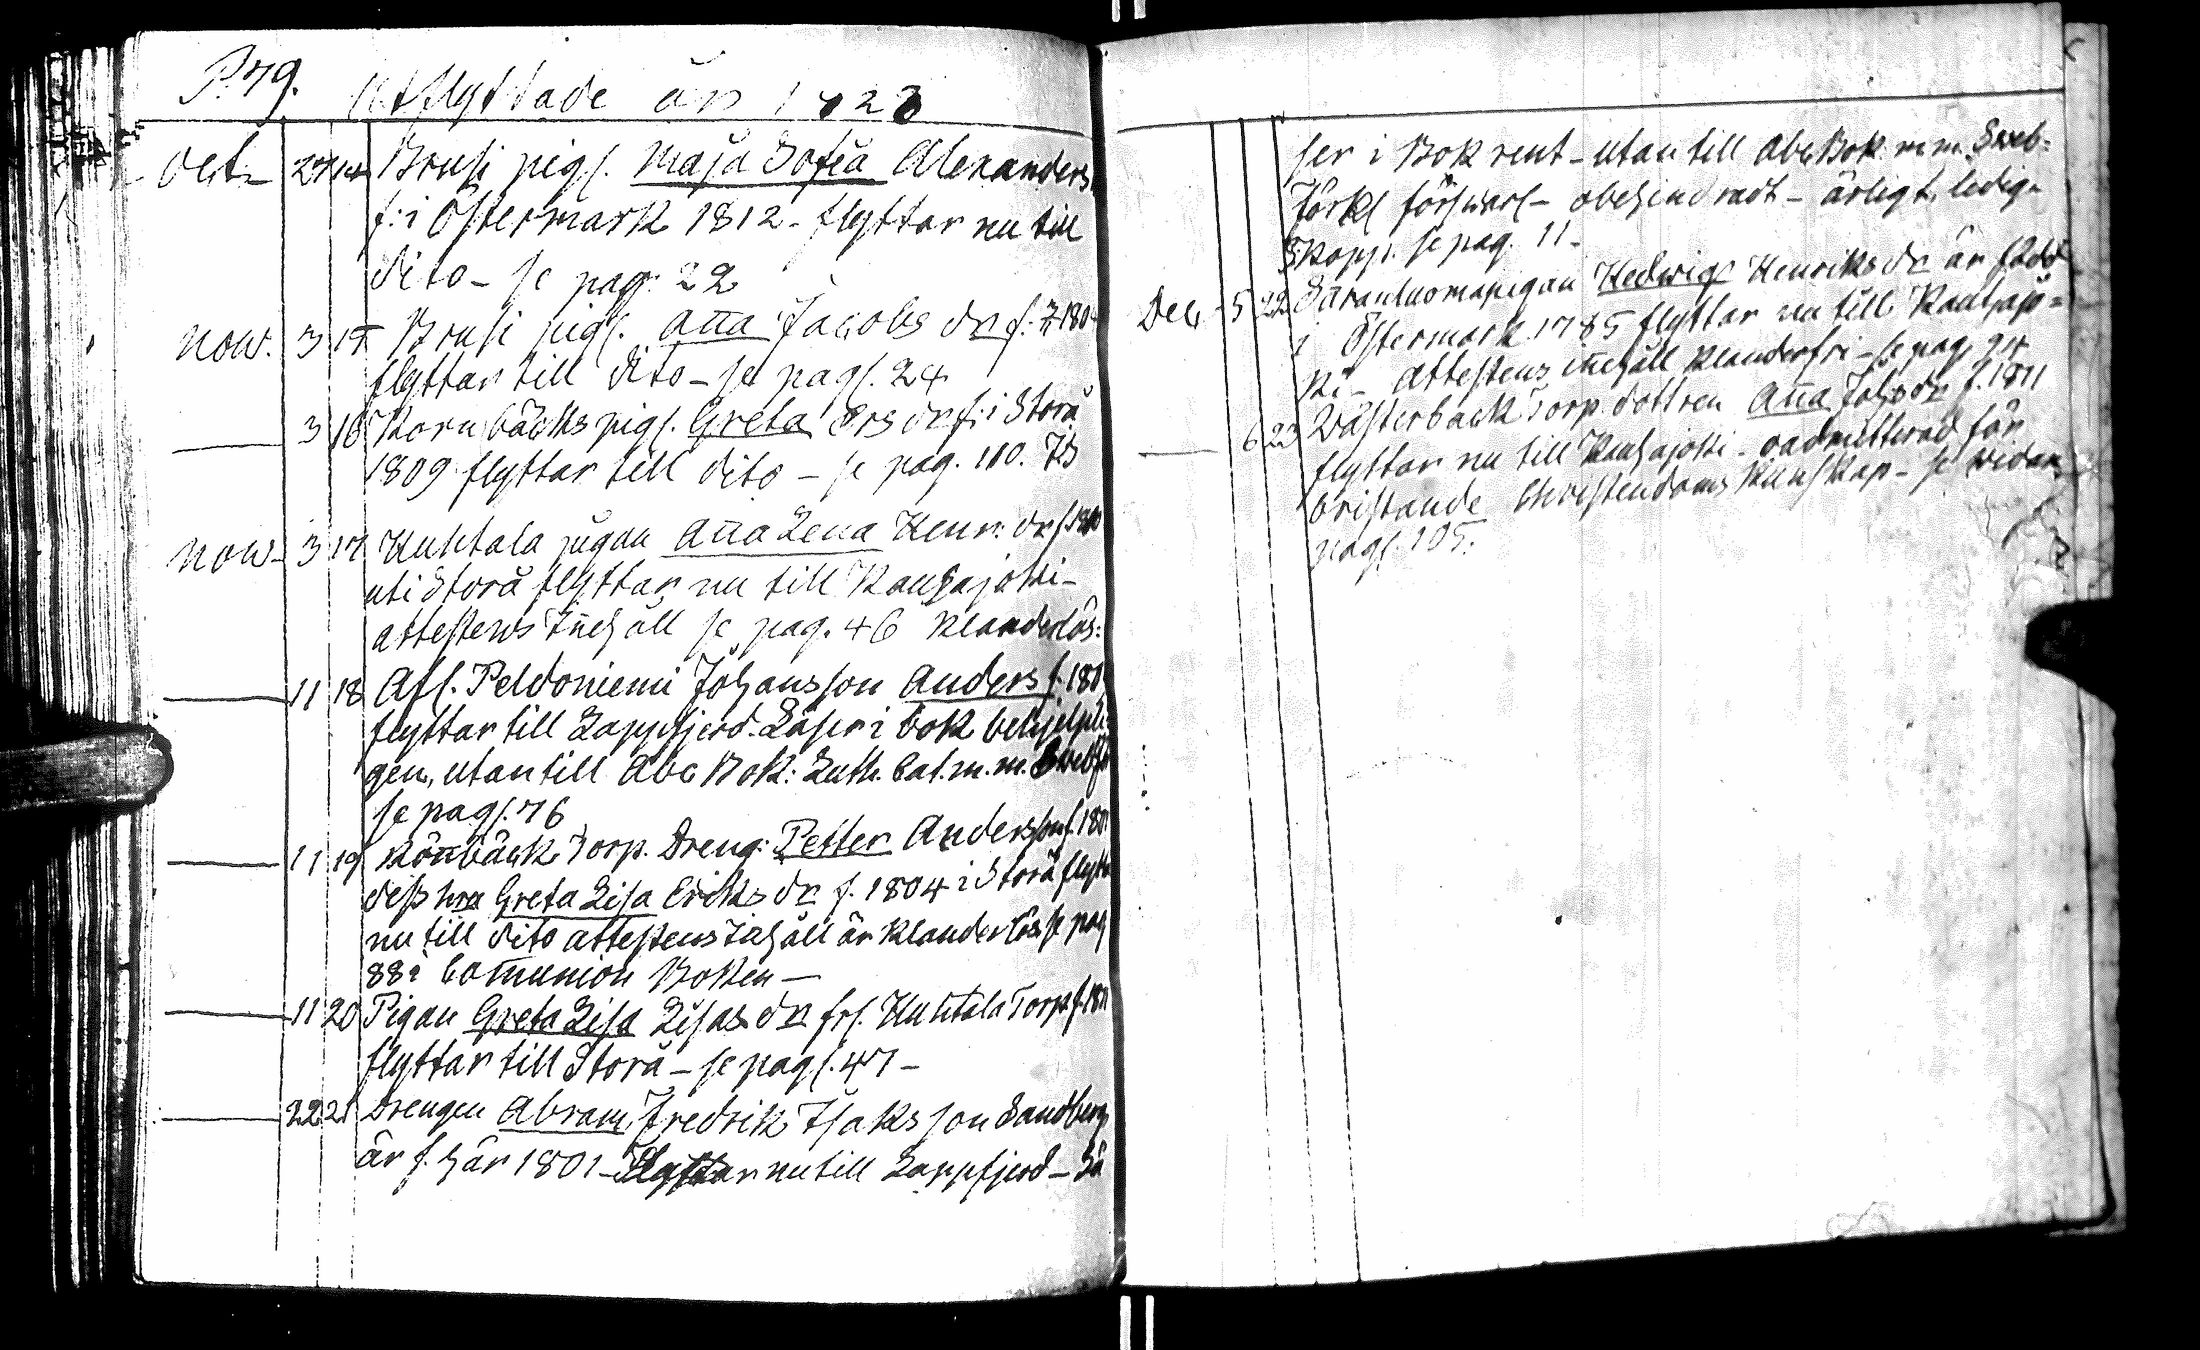 P. 79. Utflyttade år 1828
Oct. 27 14 Brusi pigs. Maja Sofia Alexanders
f: i Östermark 1812 - flyttar nu till
dito - se pag: 22
Now. 3 15 Brusi pigs. Aña Jacobs dr f.
flyttar till dito - se pags. 24
3 16 Kornbäcks pigs. Greta Ers dr f: i Storå
1809 flyttar till dito - se pag. 110.
Now - 3 17 Huhtala pigan Aña Lena Henr: dr f.
uti Storå flyttar nu till Kauhajoki -
attestens Iñehåll se pag. 46 klanderlös:
11 18 Afs. Peldoniemi Johansson Anders f. 180
flyttar till Lappfjerd. Läser i bok behjelpli:
gen, utantill Abc Bok: Luth. Cat. m. m.
se pags. 76
11 19 Röñbäck Torp. Dreng: Petter Andersson f. 180
dess hru Greta Lisa Eriks dr f. 1804 i Storå flytta
nu till dito attestens Iñehåll är klanderlös se pag
88 i Comunion Boken -
11 20 Pigan Greta Lisa Lisas dr frs. Huhtala Torp f. 18
flyttar till Storå - se pags. 47 -
22 21 Drengen Abram Fredrik Isaksson Sandberg
är f. här 1801 - Flyttar nu till Lappfjerd - Lä
ser i Bok rent - utantill Abc Bok m. m. Sweb:
Förkl försvarl - obehindradt - ärligt, ledig
Skopp. se pag. 11 -
Dec - 5 22 Säräntuomapigan Hedwig Henriks dr är född
i Östermark 1785 flyttar nu till Kauhajo=
ki - Attestens iñehåll klanderfri - se pag. 94
6 23 Wästerback Torp. dottren Aña Johs dr f. 1811
flyttar nu till Kauhajoki - oadmitterad för
bristande Christendoms kunskap - se vidare
pags. 105.